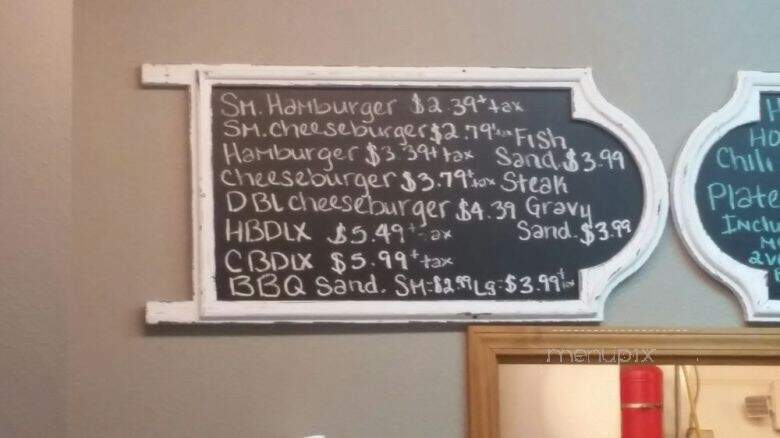 Sm. Hamburger $2.39+tax
Sm. cheeseburger $2.79+tax Fish
Hamburger $3.39+tax Sand. $3.99
cheeseburger $3.79+tax Steak
DBL cheeseburger $4.39 Gravy
HBDLX $5.49+tax Sand. $3.99
CBDLX $5.99+tax
BBQ Sand. Sm-$2.99 Lg-$3.99+tax
Ho
Chili
Plate
Inclu
2
menupix